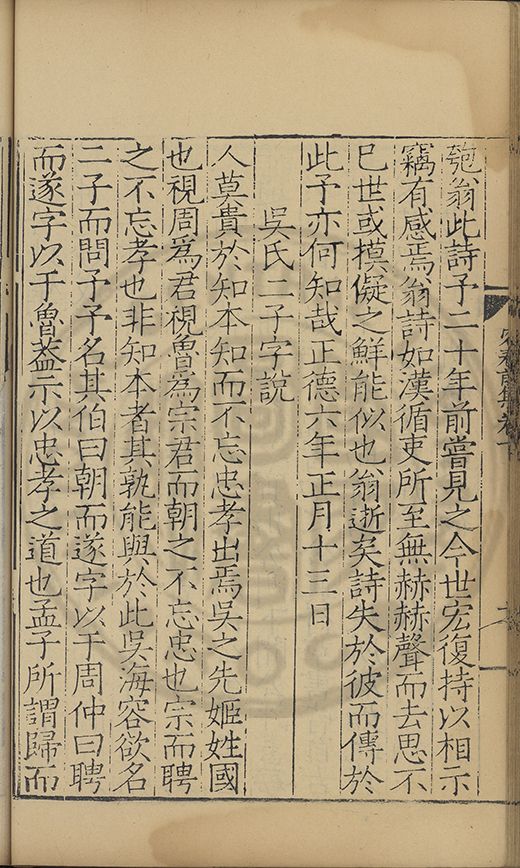 匏翁此詩予二十年前嘗見之今世宏復持以相示
竊有感焉翁詩如漢循吏所至無赫赫聲而去思不
已世或摸儗之鮮能似也翁逝矣詩失於彼而傳於
此予亦何知哉正德六年正月十三日
吳氏二子字說
人莫貴於知本知而不忘忠孝出焉吳之先姬姓國
也視周為君視魯為宗君而朝之不忘忠也宗而聘
之不忘孝也非知本者其孰能與於此吳海容欲名
二子而問予予名其伯曰朝而遂字以于周仲曰聘
而遂字以于魯葢示以忠孝之道也孟子所謂歸而